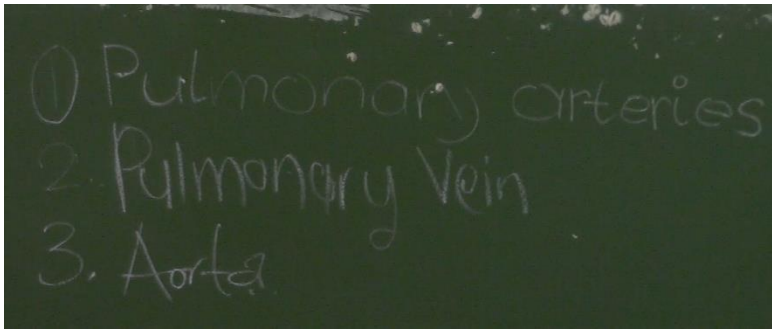 ① Pulmonary arteries
2. Pulmonary Vein
3. Aorta